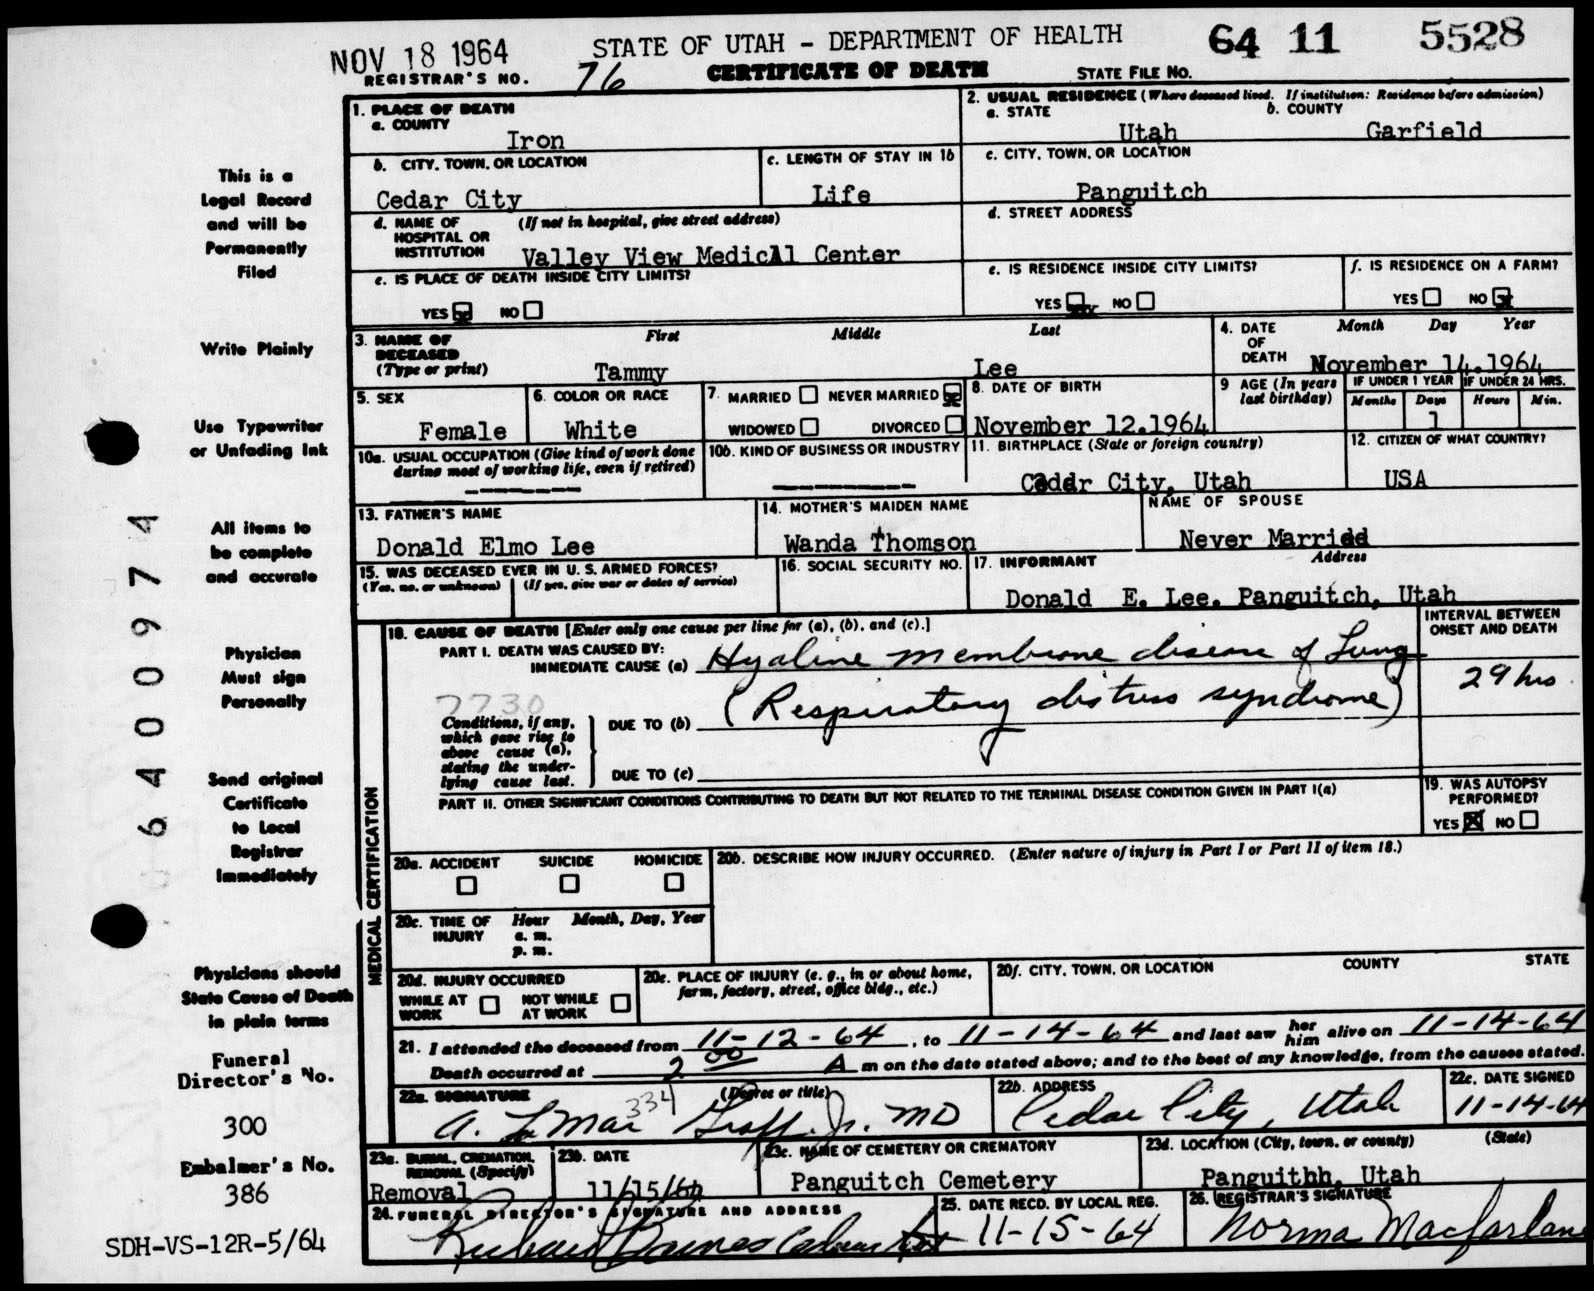 NOV 18 1964
STATE OF UTAH - DEPARTMENT OF HEALTH
64 11 5528
REGISTRAR'S NO. 76
CERTIFICATE OF DEATH
STATE FILE NO.
This is a
Legal Record
and will be
Permanently
Filed
Write Plainly
Use Typewriter
or Unfading Ink
All items to
be complete
and accurate
Physician
Must sign
Personally
Send original
Certificate
to Local
Registrar
Immediately
Physicians should
State Cause of Death
in plain terms
Funeral
Director's No.
300
Embalmer's No.
386
SDH-VS-12R-5/64
6400974
1. PLACE OF DEATH
a. COUNTY
Iron
2. USUAL RESIDENCE (Where deceased lived. If institution: Residence before admission)
a. STATE b. COUNTY
Utah Garfield
b. CITY, TOWN, OR LOCATION
Cedar City
c. LENGTH OF STAY IN 1b
Life
c. CITY, TOWN, OR LOCATION
Panguitch
d. NAME OF (If not in hospital, give street address)
HOSPITAL OR
INSTITUTION Valley View MedicAl Center
d. STREET ADDRESS
e. IS PLACE OF DEATH INSIDE CITY LIMITS?
YES NO
e. IS RESIDENCE INSIDE CITY LIMITS?
YES NO
f. IS RESIDENCE ON A FARM?
YES NO
3. NAME OF First Middle Last
DECEASED
(Type or print) Tammy Lee
4. DATE Month Day Year
OF
DEATH November 14,1964
5. SEX
Female
6. COLOR OR RACE
White
7. MARRIED NEVER MARRIED
WIDOWED DIVORCED
8. DATE OF BIRTH
November 12.1964
9 AGE (In years
last birthday)
IF UNDER 1 YEAR IF UNDER 24 HRS.
Months Days Hours Min.
1
10a. USUAL OCCUPATION (Give kind of work done
during most of working life, even if retired)
10b. KIND OF BUSINESS OR INDUSTRY
11. BIRTHPLACE (State or foreign country)
Cedar City, Utah
12. CITIZEN OF WHAT COUNTRY?
USA
13. FATHER'S NAME
Donald Elmo Lee
14. MOTHER'S MAIDEN NAME
Wanda Thomson
NAME OF SPOUSE
Never Married
15. WAS DECEASED EVER IN U. S. ARMED FORCES?
(Yes, no, or unknown) (If yes, give war or dates of service)
16. SOCIAL SECURITY NO.
17. INFORMANT Address
Donald E. Lee. Panguitch, Utah
MEDICAL CERTIFICATION
18. CAUSE OF DEATH [Enter only one cause per line for (a), (b), and (c).]
INTERVAL BETWEEN
ONSET AND DEATH
PART I. DEATH WAS CAUSED BY:
IMMEDIATE CAUSE (a) Hyaline membrane disease of Lung
29 hrs
7730
(Respiratory distress syndrome)
Conditions, if any,
which gave rise to
above cause (a),
stating the under-
lying cause last.
DUE TO (b)
DUE TO (c)
PART II. OTHER SIGNIFICANT CONDITIONS CONTRIBUTING TO DEATH BUT NOT RELATED TO THE TERMINAL DISEASE CONDITION GIVEN IN PART I(a)
19. WAS AUTOPSY
PERFORMED?
YES NO
20a. ACCIDENT SUICIDE HOMICIDE
20b. DESCRIBE HOW INJURY OCCURRED. (Enter nature of injury in Part I or Part II of item 18.)
20c. TIME OF Hour Month, Day, Year
INJURY a. m.
p. m.
20d. INJURY OCCURRED
WHILE AT NOT WHILE
WORK AT WORK
20e. PLACE OF INJURY (e. g., in or about home,
farm, factory, street, office bldg., etc.)
20f. CITY, TOWN, OR LOCATION COUNTY STATE
21. I attended the deceased from 11-12-64, to 11-14-64 and last saw her him alive on 11-14-64
Death occurred at 2 00 A m on the date stated above; and to the best of my knowledge, from the causes stated.
22a. SIGNATURE (Degree or title)
334
A. LaMar Graff Jr. MD
22b. ADDRESS
Cedar City, Utah
22c. DATE SIGNED
11-14-64
23a. BURIAL, CREMATION,
REMOVAL (Specify)
Removal
23b. DATE
11/15/64
23c. NAME OF CEMETERY OR CREMATORY
Panguitch Cemetery
23d. LOCATION (City, town, or county) (State)
Panguithh, Utah
24. FUNERAL DIRECTOR'S SIGNATURE AND ADDRESS
25. DATE RECD. BY LOCAL REG.
11-15-64
26. REGISTRAR'S SIGNATURE
Norma Macfarlane